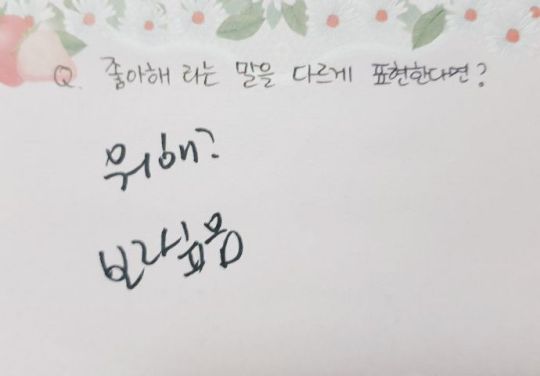 Q. 좋아해 라는 말을 다르게 표현한다면?
뭐해?
보라싶음